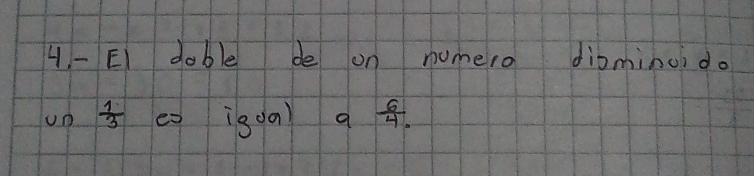 4.- El doble de un numero disminuido
un 1/3 es igual a 6/4.